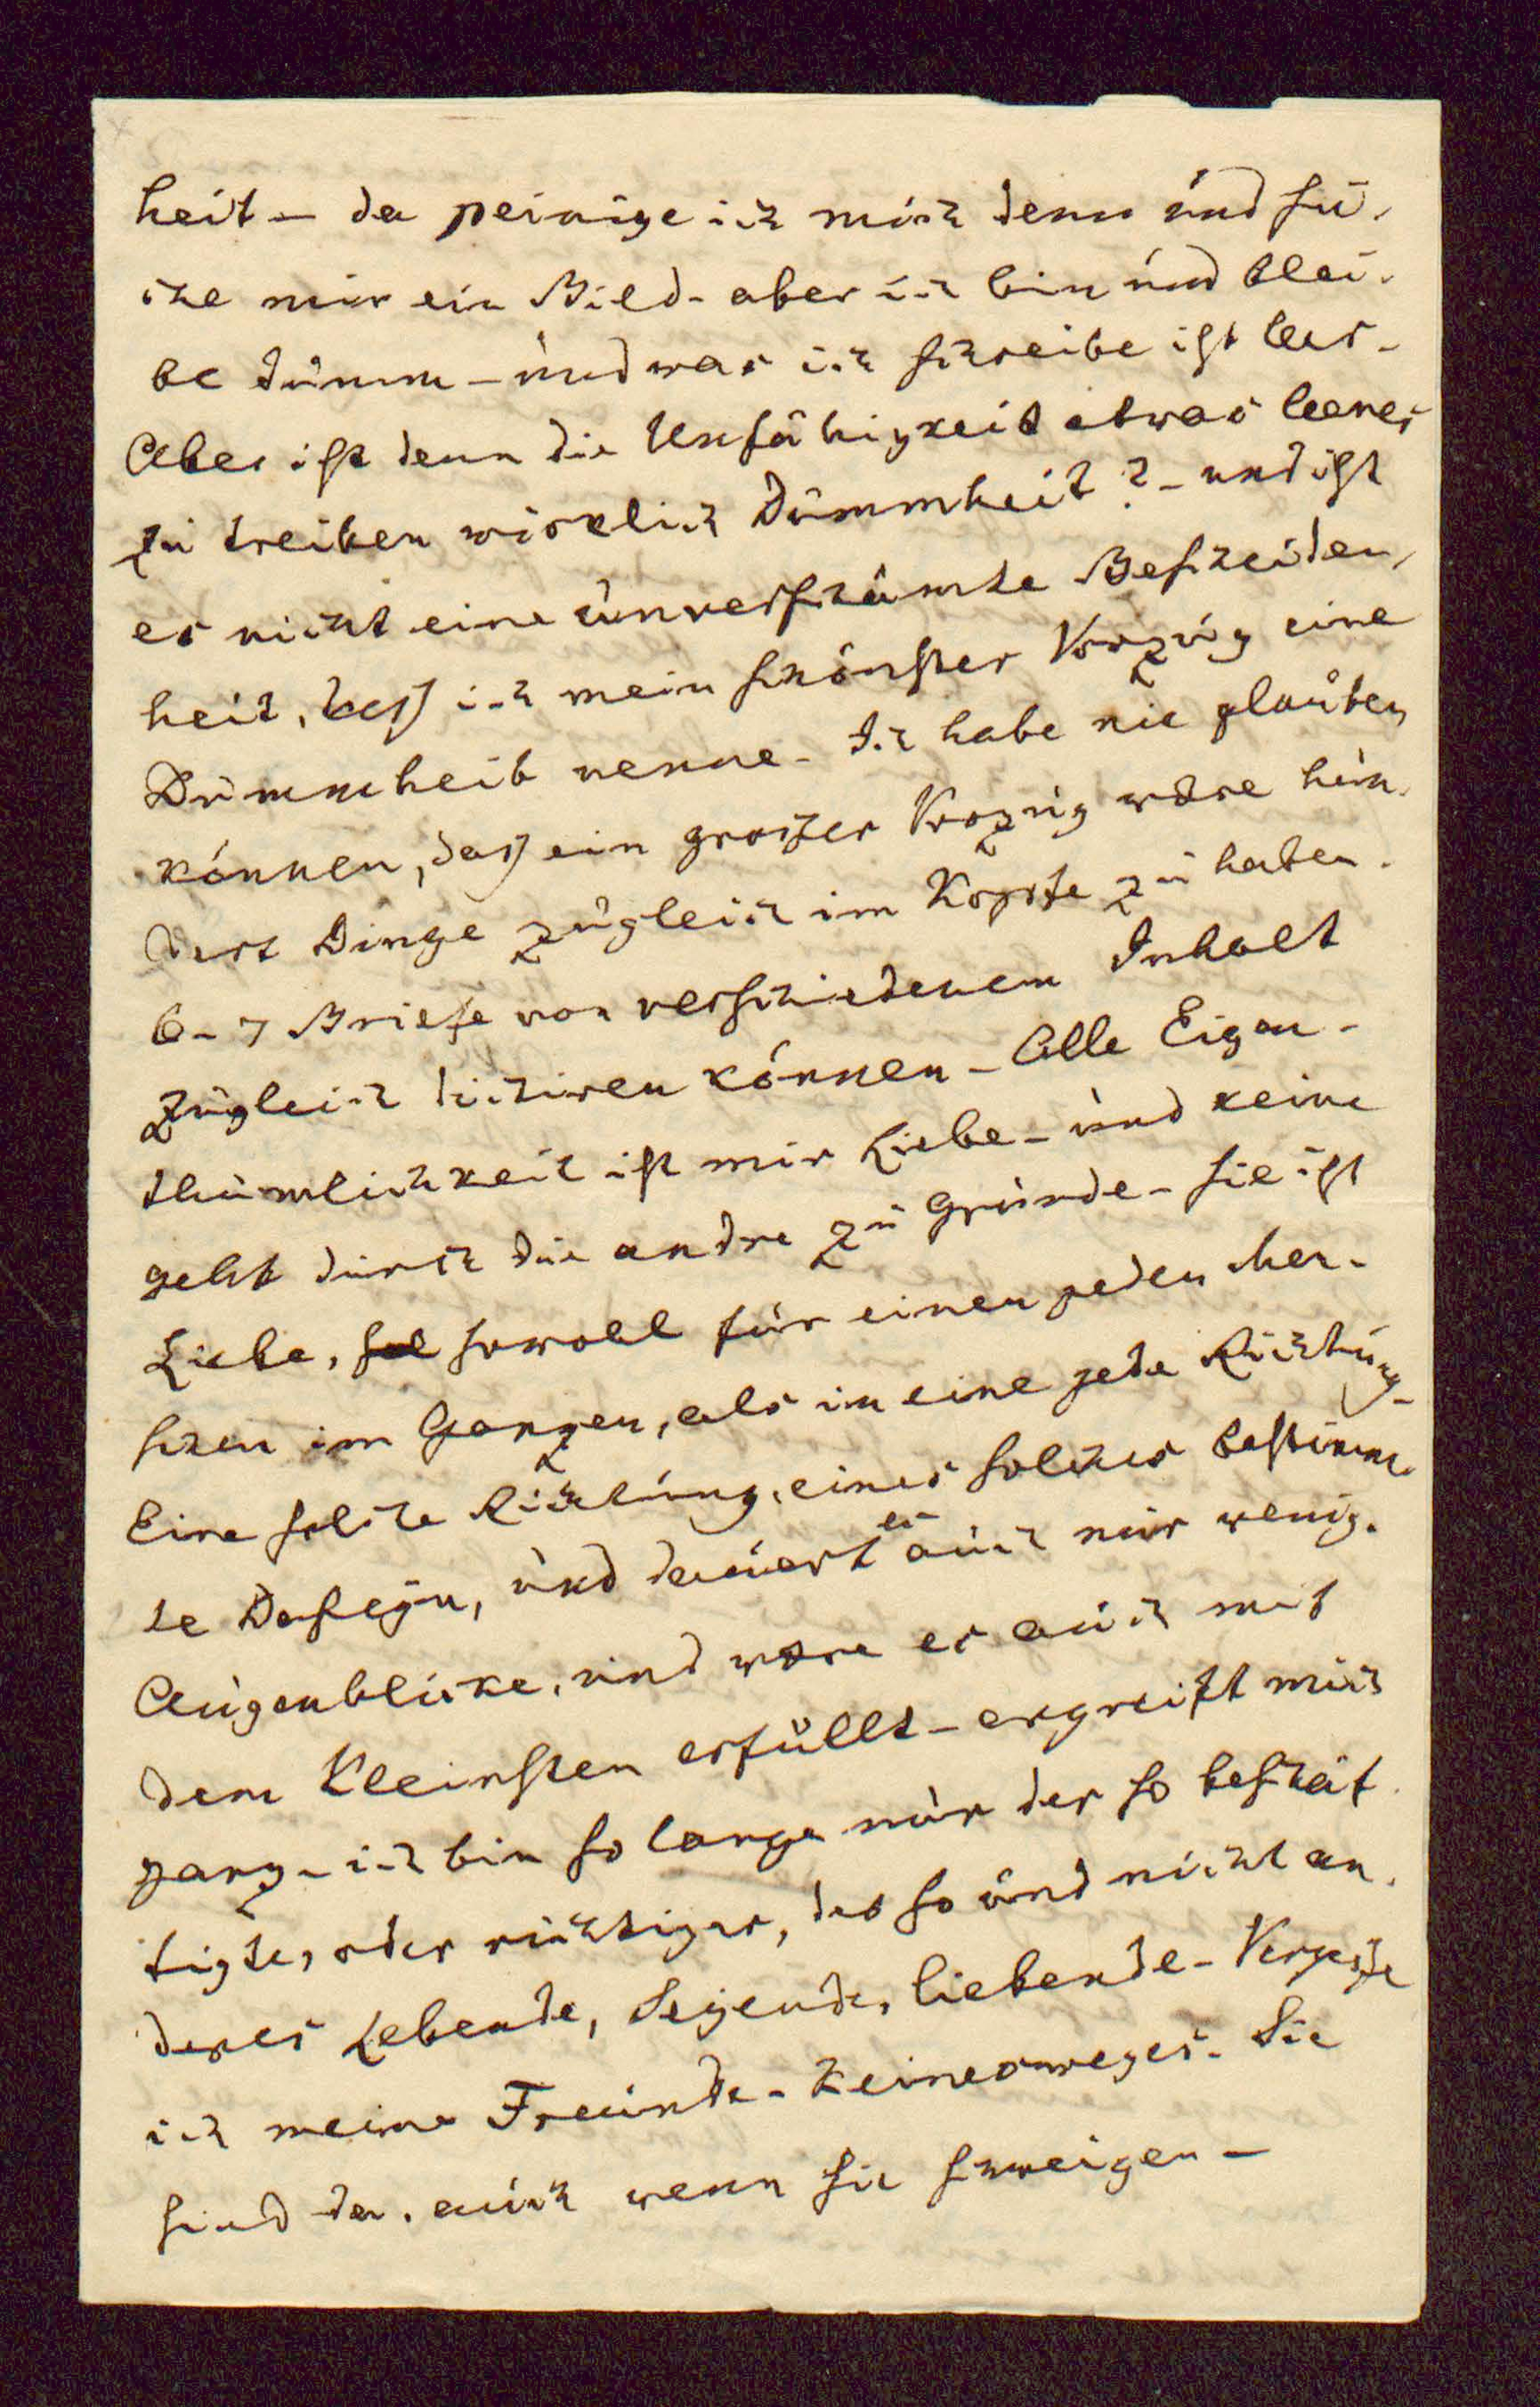 heit – da peinige ich mich denn und su-
che mir ein Bild – aber ich bin und blei-
be dumm – und was ich schreibe ist leer –
Aber ist denn die Unfähigkeit etwas leeres
zu treiben wirklich Dummheit? – und ist
es nicht eine unverschämte Bescheiden-
heit, daß ich mein schönster Vorzug eine
Dummheit nenne – Ich habe nie glauben
können, daß ein großer Vorzug wäre hun-
dert Dinge zugleich im Kopfe zu haben.
6–7 Briefe von verschiedenem Inhalt
zugleich dictiren können – Alle Eigen-
thümlichkeit ist mir Liebe – und keine
geht durch die andre zu Grunde – sie ist
Liebe, sol sowoll für einen jeden Men-
schen im Ganzen, als in eine jede Richtung –
Eine solche Richtung, eines solches bestimm-
te Daseyn, und dauert es auch nur wenig.
Augenblicke, und wäre es auch mit
dem Kleinsten erfüllt – ergreift mich
ganz – ich bin so lange nur der so beschäf-
tigte, oder richtiger, das so und nicht an-
deres Lebende, Seyende, liebende – Vergesse
ich meine Freunde – Keinesweges – Sie
sind da, auch wenn sie schweigen –